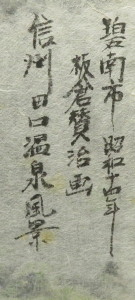 碧南市 昭和十四年
板倉賛治画
信州 田口温泉風景